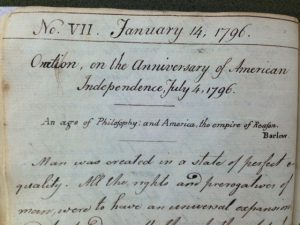 No. VII. January 14, 1796.
Oration, on the Anniversary of American
Independence, July 4, 1796.
An age of Philosophy: and America, the empire of Reason.
Barlow.
Man was created in a state of perfect e-
quality. All the rights and prerogatives of
man, were to have an universal expansion